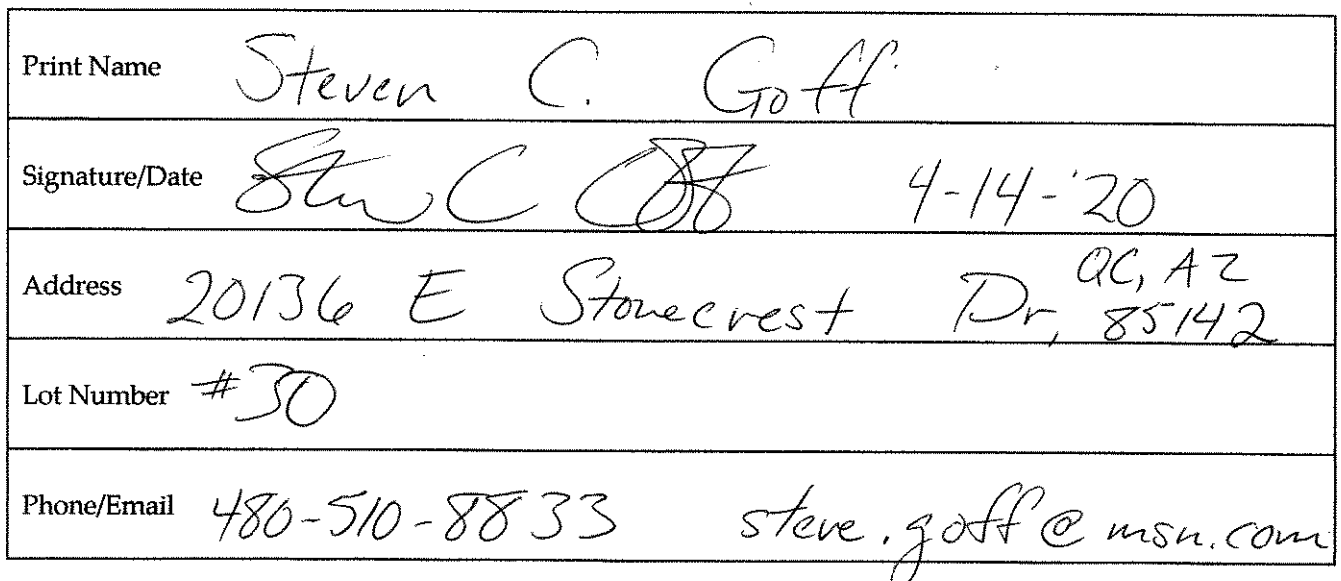 Print Name Steven C. Goff
Signature/Date Steven C Goff 4-14-'20
Address 20136 E Stonecrest Dr, QC, AZ 85142
Lot Number #30
Phone/Email 480-510-8833 steve.goff@msn.com